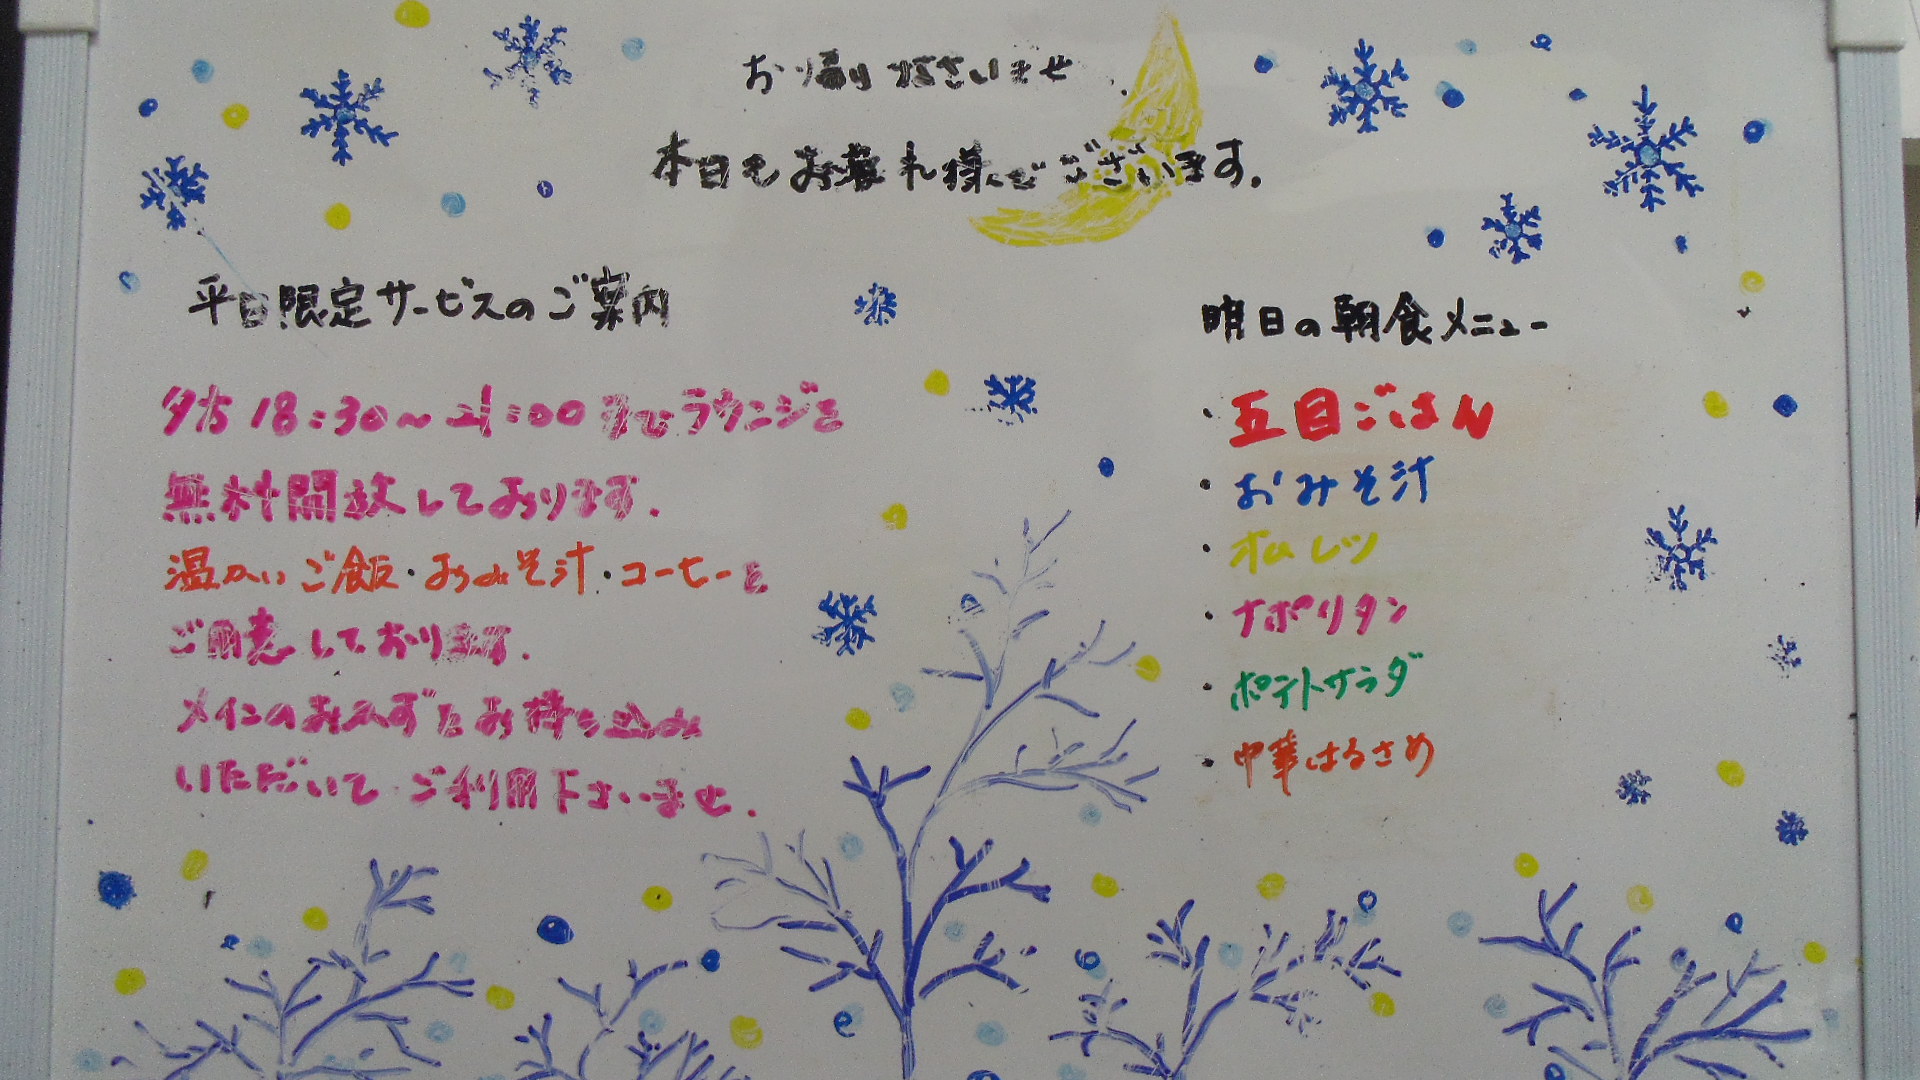 お帰りなさいませ
本日もお疲れ様でございます。
平日限定サービスのご案内
夕方18:30〜21:00までラウンジを
無料開放しております。
温かいご飯・おみそ汁・コーヒーを
ご用意しております。
メインのおかずをお持ち込み
いただいてご利用下さいませ。
明日の朝食メニュー
・五目ごはん
・おみそ汁
・オムレツ
・ナポリタン
・ポテトサラダ
・中華はるさめ